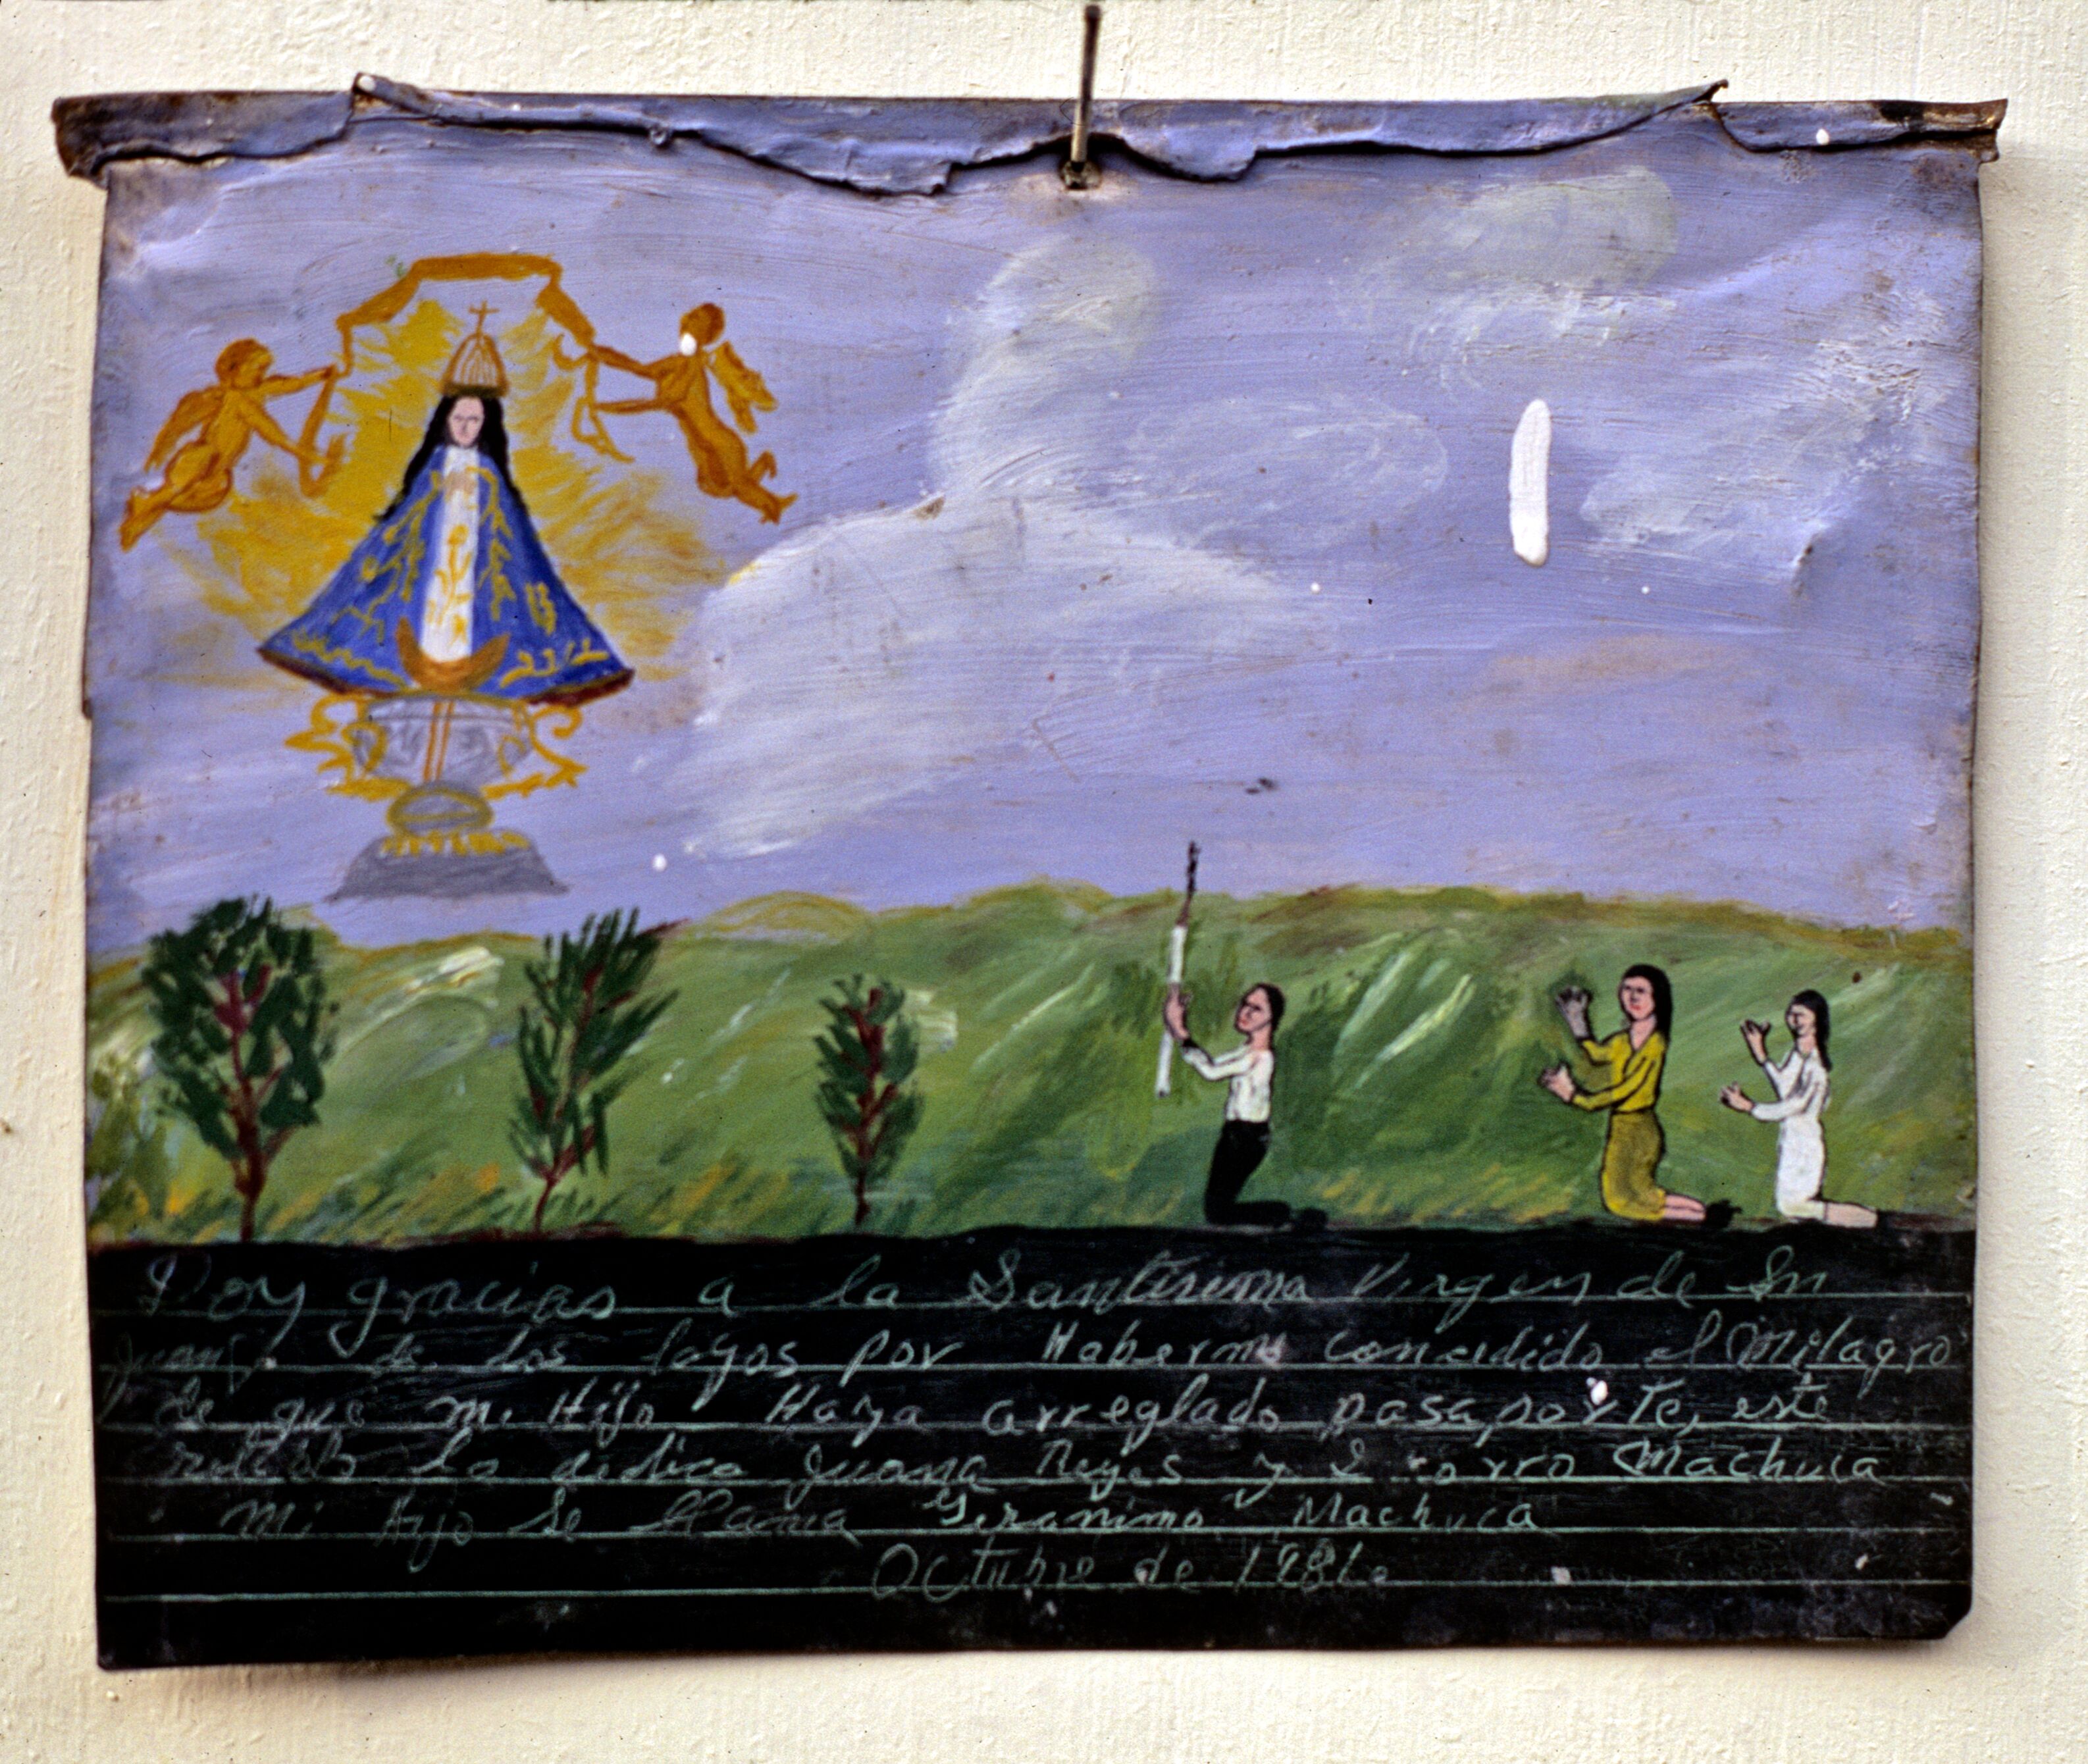 Doy gracias a la Santisima Virgen de Sn
Juan de los lagos por Haberme concedido el Milagro
de que mi Hijo Haya arreglado pasaporte, este
retablo lo dedica Juana Reyes y Machuca
mi Hijo se llama Geranimo Machuca
Octubre de 1981.